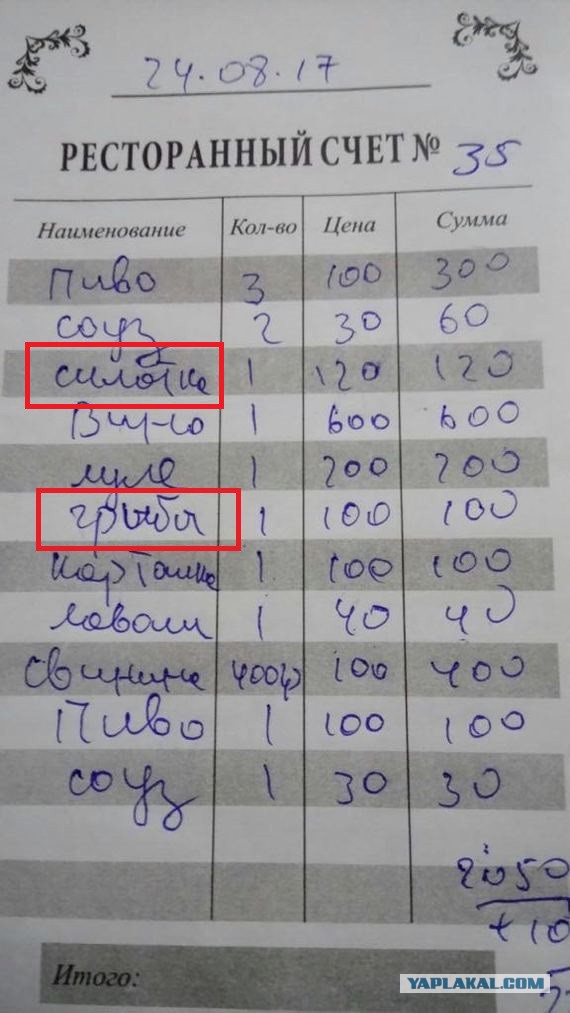 24.08.17
РЕСТОРАННЫЙ СЧЕТ № 35
Наименование Кол-во Цена Сумма
Пиво 3 100 300
соуз 2 30 60
силотка 1 120 120
1 600 600
1 200 200
грыбы 1 100 100
картошка 1 100 100
лаваш 1 40 40
свинина 400гр 100 400
Пиво 1 100 100
соуз 1 30 30
2050
+10
Итого:
YAPLAKAL.COM